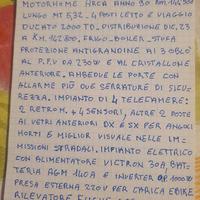 MOTORHOME ARCA ANNO 30
LUNGO MT 5,32. 4 POSTI LETTO E VIAGGIO
DUCATO 2000 TD. DISTRIBUZIONE DIC. 23
A KM. 142.800. FRIGO. BOILER. STUFA
PROTEZIONE ANTIGRANDINE AI 3 OBLO'
AL P.F.V DA 230W E AL CRISTALLONE
ANTERIORE. AMBEDUE LE PORTE CON
ALLARME PIÙ DUE SERRATURE DI SICU
REZZA. IMPIANTO DI 4 TELECAMERE:
2 RETRO M. + 4 SENSORI, ALTRE 2 POSTE
AI VETRI ANTERIORI DX E SX PER ANGOLI
MORTI E MIGLIOR VISUALE NELLE IM
MISSIONI STRADALI. IMPIANTO ELETTRICO
CON ALIMENTATORE VICTRON 30A, BAT
TERIA AGM 140A E INVERTER
PRESA ESTERNA 220V PER CARICA EBIKE
RILEVATORE